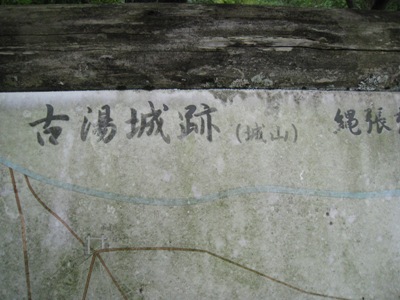 古湯城跡（城山） 縄張